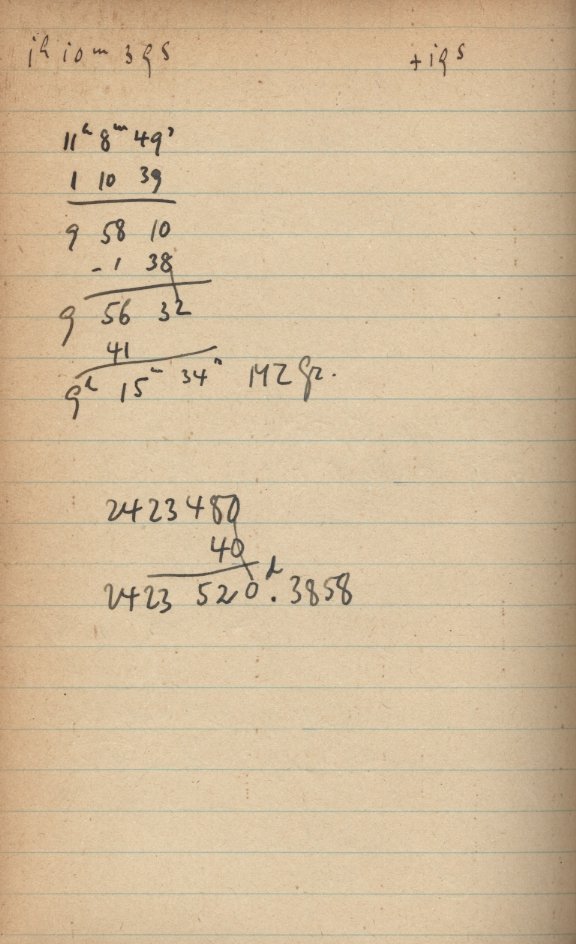 1h 10m 39s +19s
11h 8m 49s
1 10 39
9 58 10
-1 38
9 56 32
41
9h 15m 34s MZ Gr.
2423480
40
2423 520d.3858